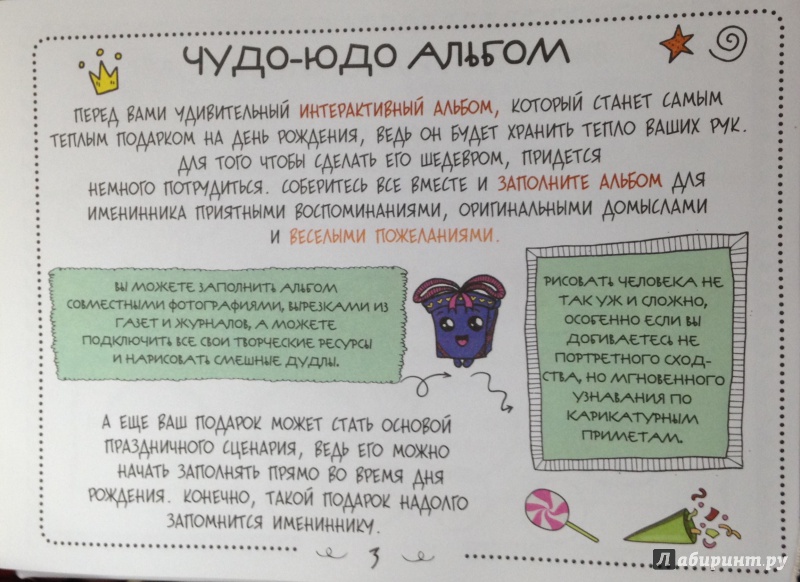 ЧУДО-ЮДО АЛЬБОМ
ПЕРЕД ВАМИ УДИВИТЕЛЬНЫЙ ИНТЕРАКТИВНЫЙ АЛЬБОМ, КОТОРЫЙ СТАНЕТ САМЫМ
ТЕПЛЫМ ПОДАРКОМ НА ДЕНЬ РОЖДЕНИЯ, ВЕДЬ ОН БУДЕТ ХРАНИТЬ ТЕПЛО ВАШИХ РУК.
ДЛЯ ТОГО ЧТОБЫ СДЕЛАТЬ ЕГО ШЕДЕВРОМ, ПРИДЕТСЯ
НЕМНОГО ПОТРУДИТЬСЯ. СОБЕРИТЕСЬ ВСЕ ВМЕСТЕ И ЗАПОЛНИТЕ АЛЬБОМ ДЛЯ
ИМЕНИННИКА ПРИЯТНЫМИ ВОСПОМИНАНИЯМИ, ОРИГИНАЛЬНЫМИ ДОМЫСЛАМИ
И ВЕСЕЛЫМИ ПОЖЕЛАНИЯМИ.
ВЫ МОЖЕТЕ ЗАПОЛНИТЬ АЛЬБОМ
СОВМЕСТНЫМИ ФОТОГРАФИЯМИ, ВЫРЕЗКАМИ ИЗ
ГАЗЕТ И ЖУРНАЛОВ, А МОЖЕТЕ
ПОДКЛЮЧИТЬ ВСЕ СВОИ ТВОРЧЕСКИЕ РЕСУРСЫ
И НАРИСОВАТЬ СМЕШНЫЕ ДУДЛЫ.
РИСОВАТЬ ЧЕЛОВЕКА НЕ
ТАК УЖ И СЛОЖНО,
ОСОБЕННО ЕСЛИ ВЫ
ДОБИВАЕТЕСЬ НЕ
ПОРТРЕТНОГО СХОД-
СТВА, НО МГНОВЕННОГО
УЗНАВАНИЯ ПО
КАРИКАТУРНЫМ
ПРИМЕТАМ.
А ЕЩЕ ВАШ ПОДАРОК МОЖЕТ СТАТЬ ОСНОВОЙ
ПРАЗДНИЧНОГО СЦЕНАРИЯ, ВЕДЬ ЕГО МОЖНО
НАЧАТЬ ЗАПОЛНЯТЬ ПРЯМО ВО ВРЕМЯ ДНЯ
РОЖДЕНИЯ. КОНЕЧНО, ТАКОЙ ПОДАРОК НАДОЛГО
ЗАПОМНИТСЯ ИМЕНИННИКУ.
3
Лабиринт.ру